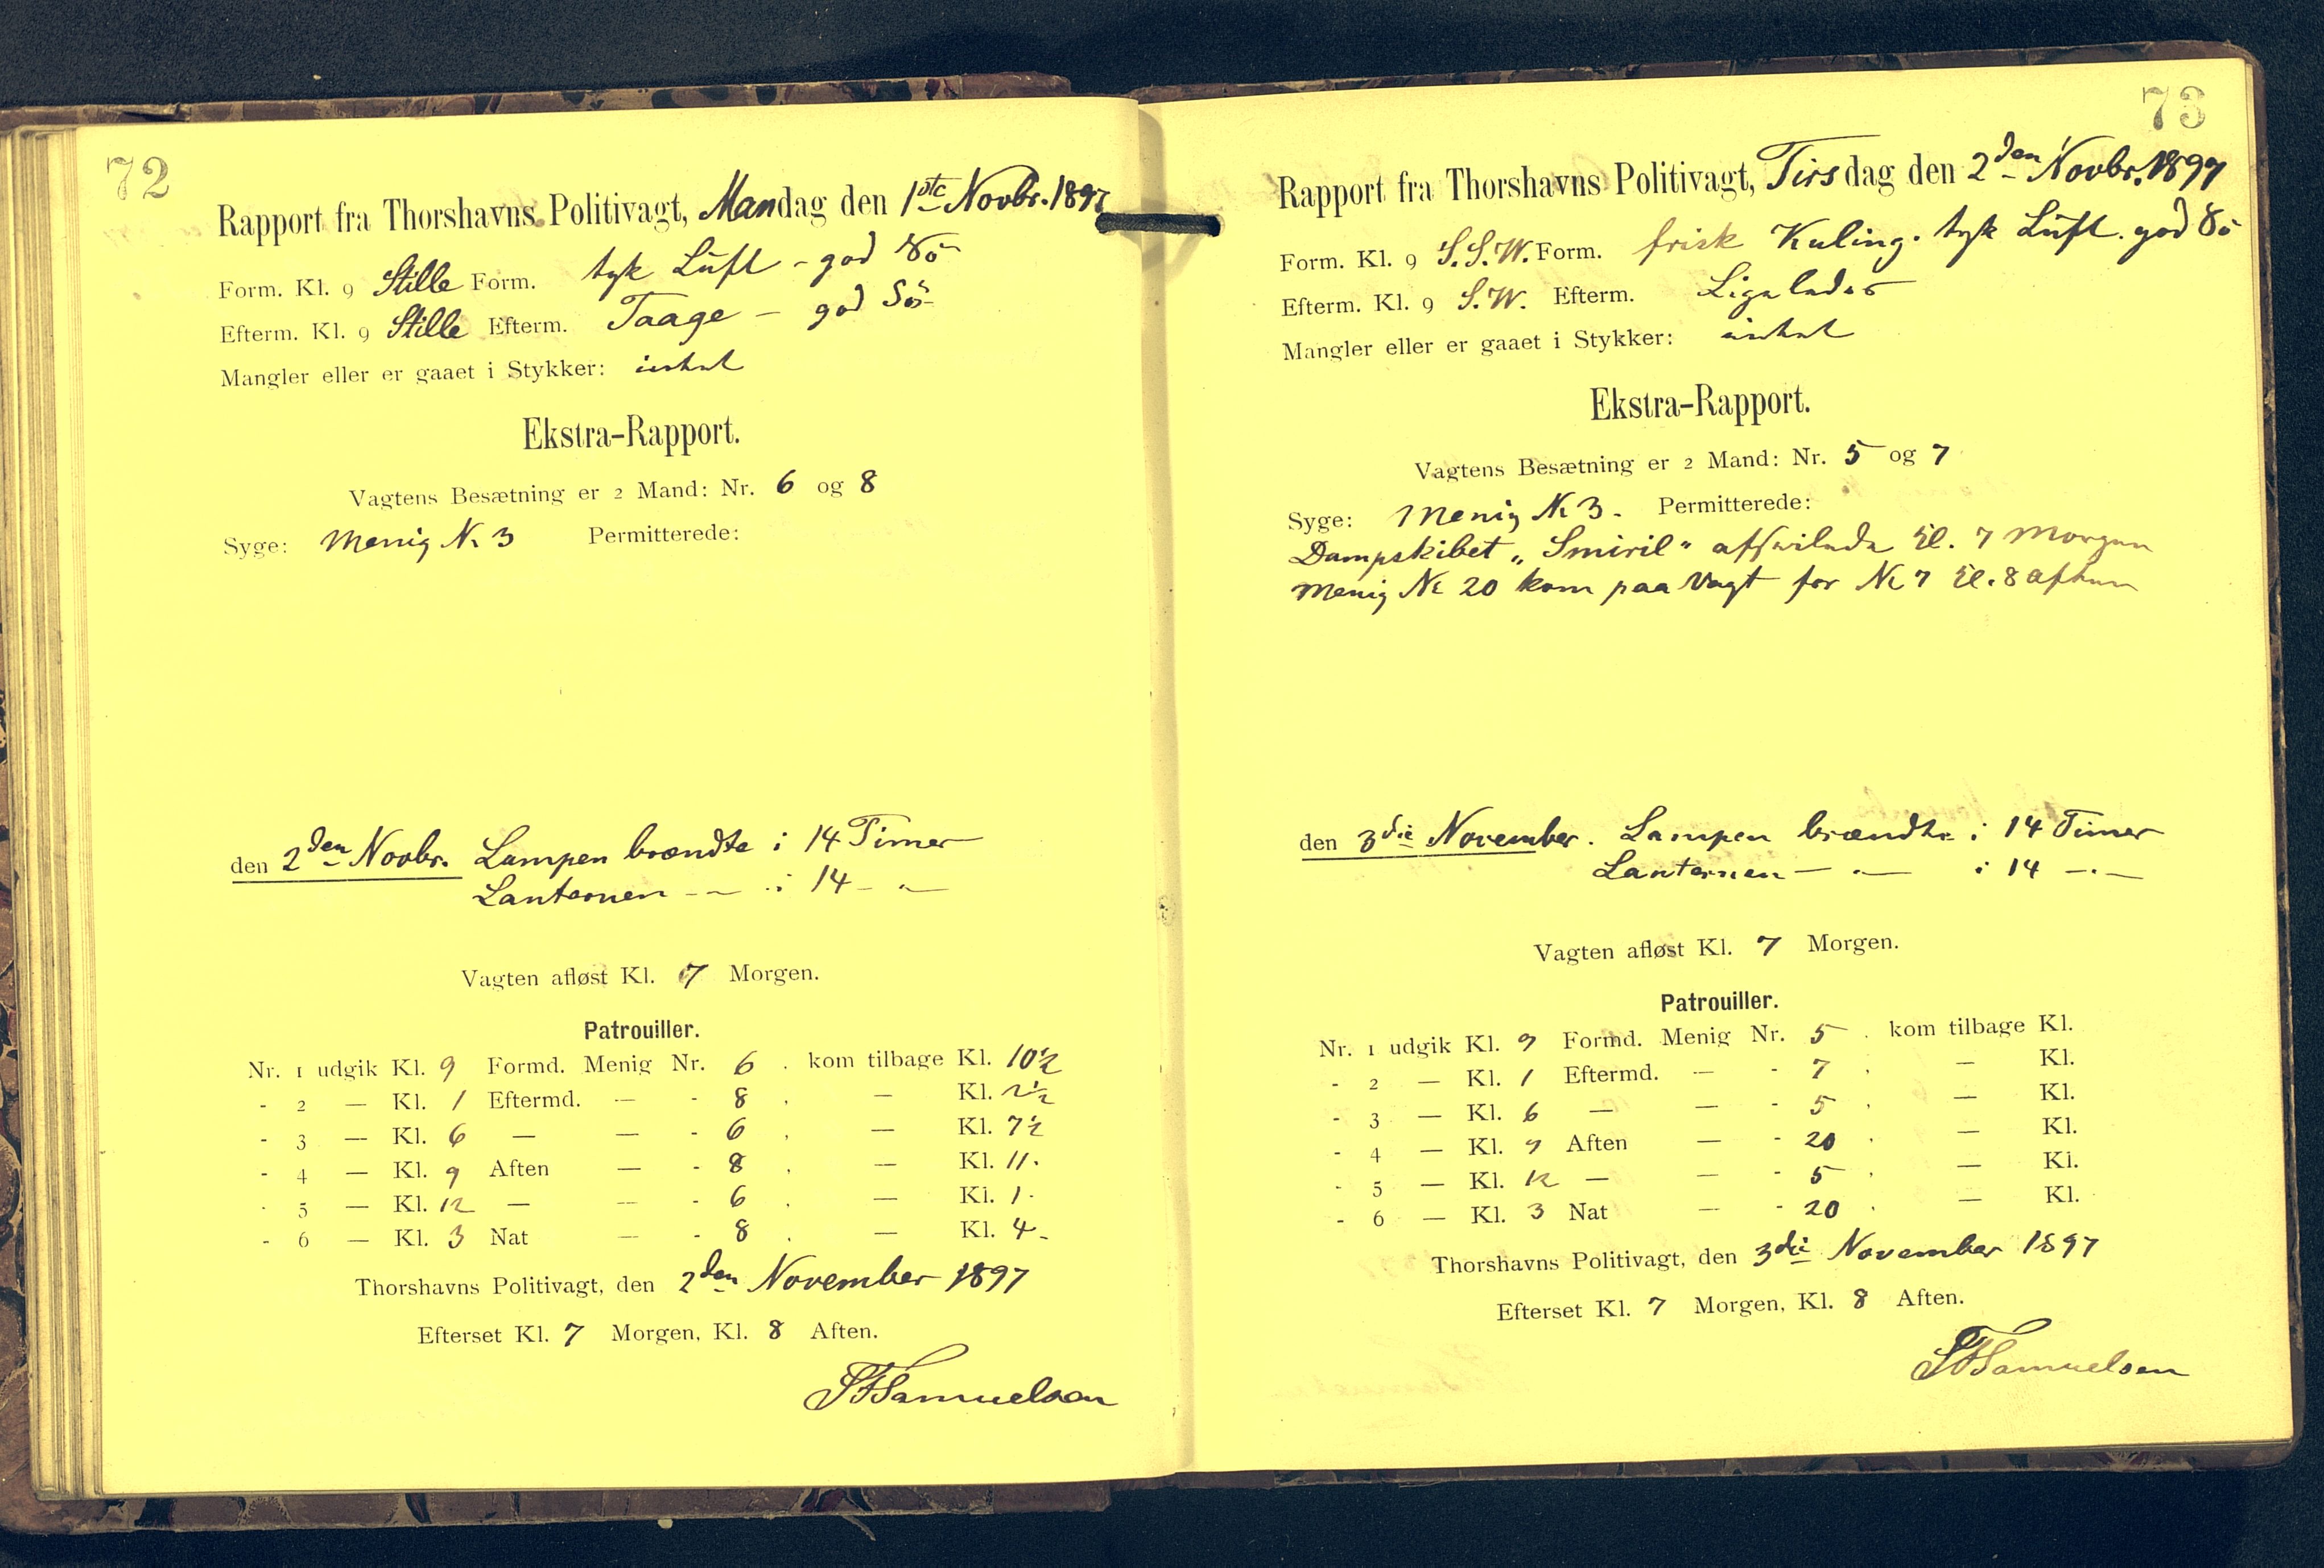 72
Rapport fra Thorshavns Politivagt, Mandag den 1ste Novbr. 1897
Form. Kl. 9 Stille Form. tyk Luft - god Sö
Efterm. Kl. 9 Stille Efterm. Taage - god Sö
Mangler eller er gaaet i Stykker: intet
Ekstra-Rapport.
Vagtens Besætning er 2 Mand: Nr. 6 og 8
Syge: Menig Nr 3 Permitterede:
den 2den Novbr. Lampen brændte i 14 Timer
Lanternen - " - i 14 - " -
Vagten afløst Kl. 7 Morgen.
Patrouiller.
Nr. 1 udgik Kl. 9 Formd. Menig Nr. 6 . kom tilbage Kl. 10½
- 2 — Kl. 1 Eftermd. — - 8 . — Kl. 2½
- 3 — Kl. 6 — — - 6 . — Kl. 7½
- 4 — Kl. 9 Aften — - 8 . — Kl. 11.
- 5 — Kl. 12 — — - 6 . — Kl. 1.
- 6 — Kl. 3 Nat — - 8 . — Kl. 4.
Thorshavns Politivagt, den 2den November 1897
Efterset Kl. 7 Morgen, Kl. 8 Aften.
Samuelsen
73
Rapport fra Thorshavns Politivagt, Tirsdag den 2den Novbr. 1897
Form. Kl. 9 S.S.W. Form. frisk Kuling. tyk Luft. god Sö
Efterm. Kl. 9 S.W. Efterm. Ligeledes
Mangler eller er gaaet i Stykker: intet
Ekstra-Rapport.
Vagtens Besætning er 2 Mand: Nr. 5 og 7
Syge: Menig Nr 3. Permitterede:
Dampskibet „Smiril" afseilede Kl. 7 Morgen
Menig Nr 20 kom paa Vagt for Nr 7 Kl. 8 aften
den 3die November. Lampen brændte i 14 Timer
Lanternen - " - i 14 - " -
Vagten afløst Kl. 7 Morgen.
Patrouiller.
Nr. 1 udgik Kl. 9 Formd. Menig Nr. 5 . kom tilbage Kl.
- 2 — Kl. 1 Eftermd. — - 7 . — Kl.
- 3 — Kl. 6 — — - 5 . — Kl.
- 4 — Kl. 9 Aften — - 20 . — Kl.
- 5 — Kl. 12 — — - 5 . — Kl.
- 6 — Kl. 3 Nat — - 20 . — Kl.
Thorshavns Politivagt, den 3die November 1897
Efterset Kl. 7 Morgen, Kl. 8 Aften.
Samuelsen